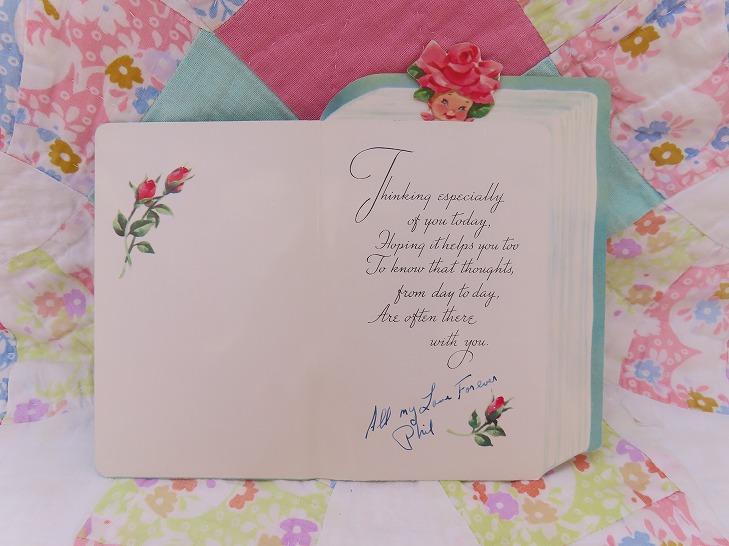 Thinking especially
of you today,
Hoping it helps you too
To know that thoughts,
from day to day,
Are often there
with you.
All my Love Forever
Phil